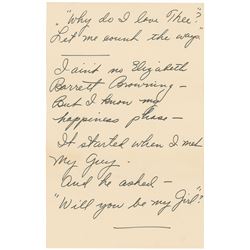 "Why do I love Thee"?
Let me count the ways.
I aint no Elizabeth
Barrett Browning –
But I know my
happiness phase –
It started when I met
My Guy.
And he asked –
"Will you be my Girl"?